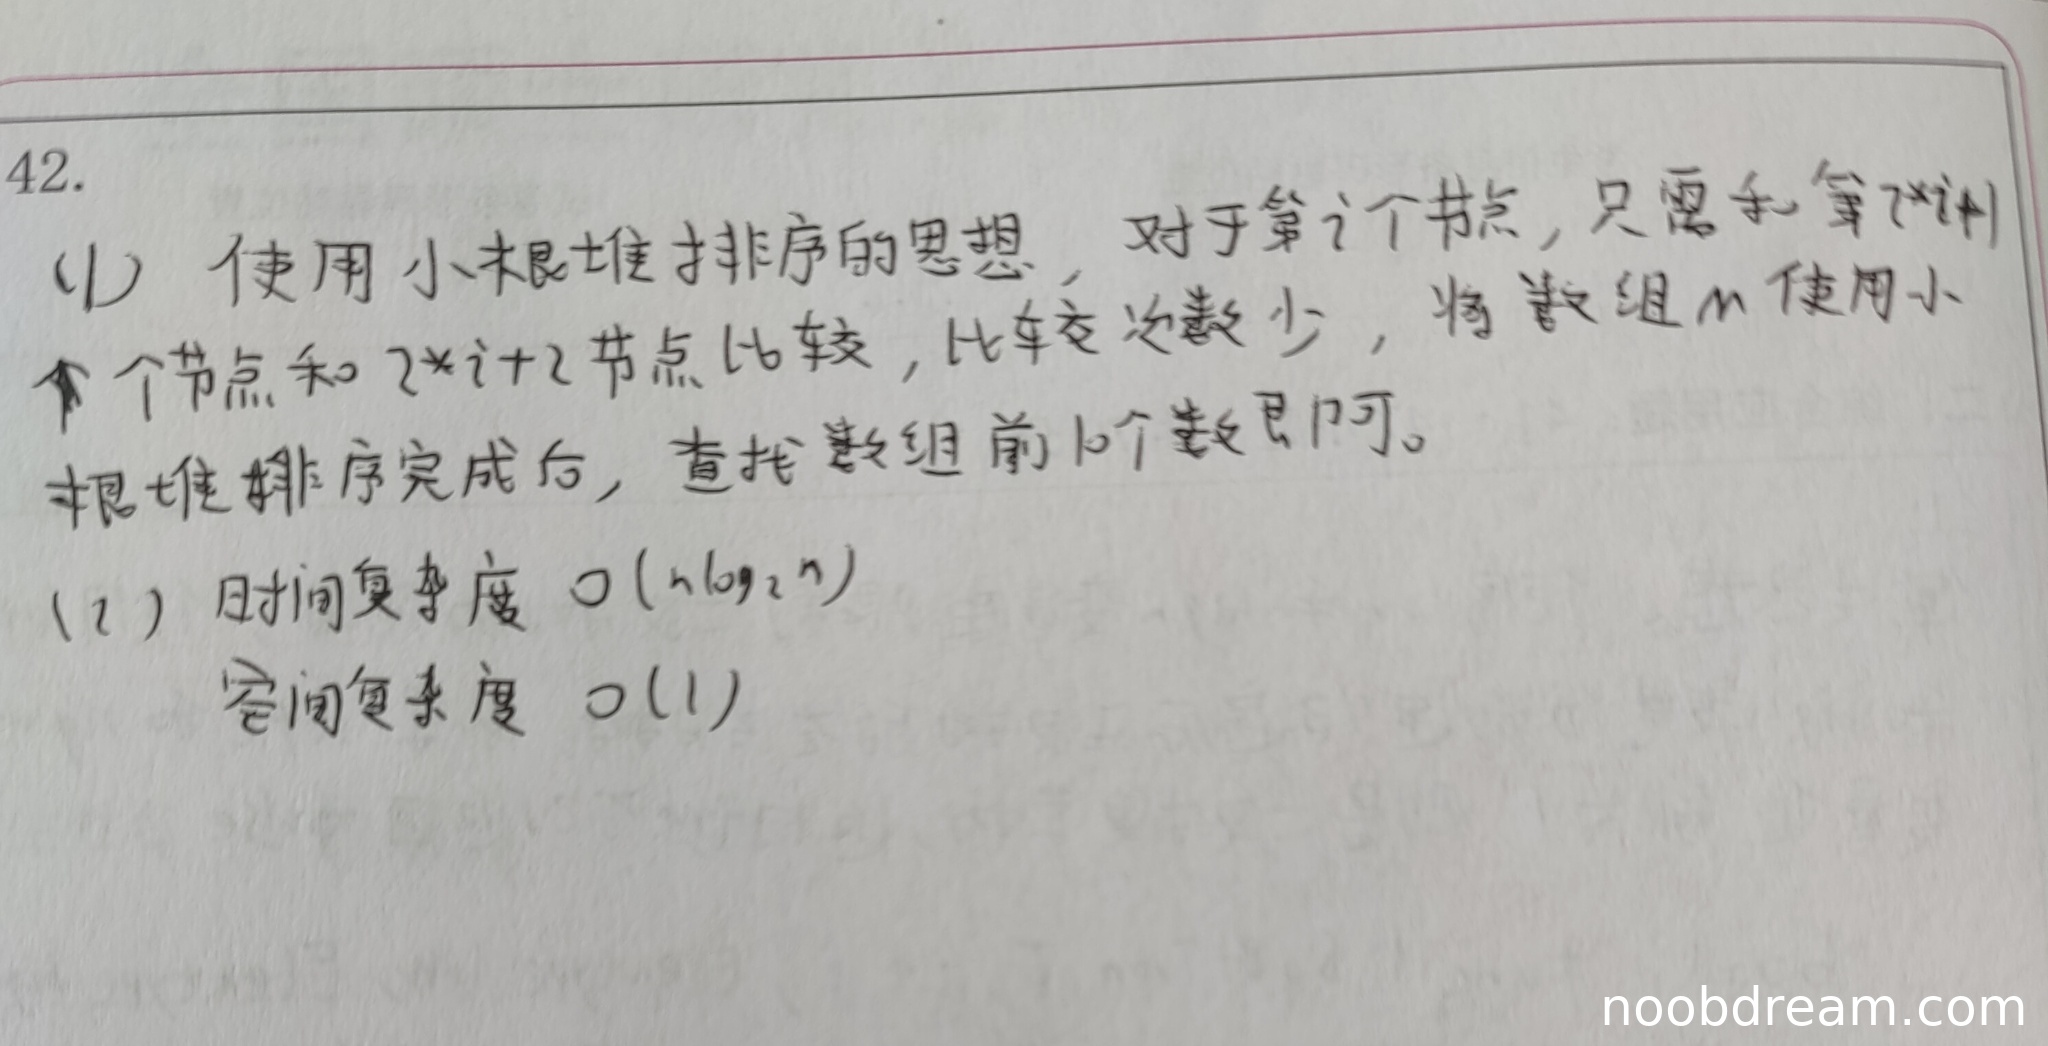 42.
(1) 使用小根堆排序的思想，对于第i个节点，只需和第2*i+1
个节点和2*i+2节点比较，比较次数少，将数组M使用小
根堆排序完成后，查找数组前10个数即可。
(2) 时间复杂度 O(nlog₂n)
空间复杂度 O(1)
noobdream.com